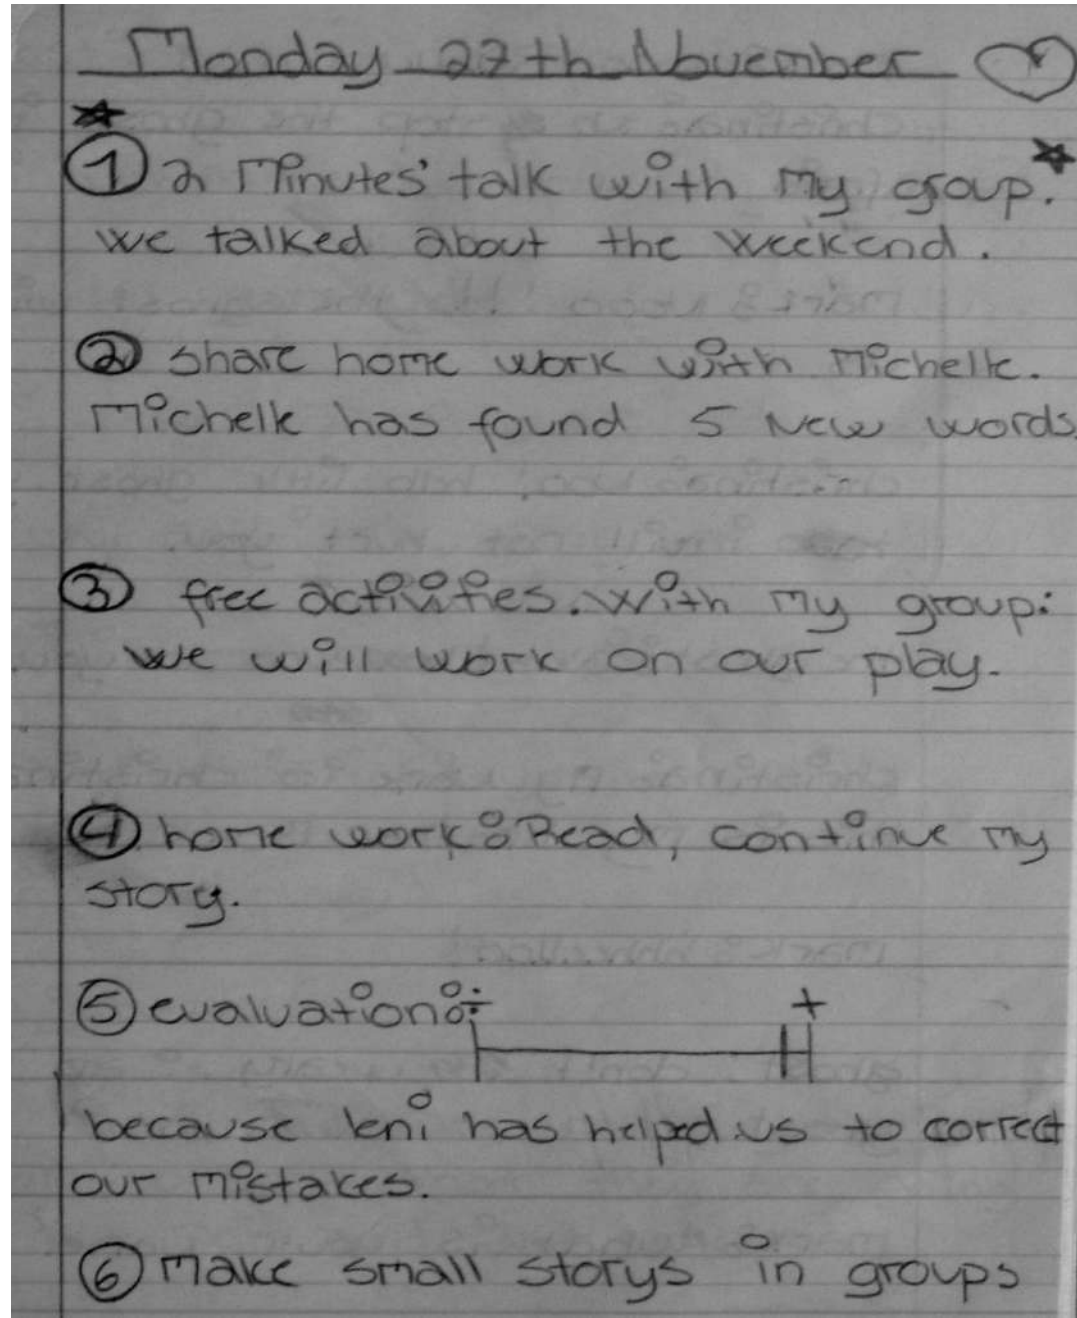 Monday 27th November
① 2 Minutes' talk with my group.
we talked about the weekend.
② share home work with Michelle.
Michelle has found 5 new words.
③ free activities. With my group:
we will work on our play.
④ home work: Read, continue my
story.
⑤ evaluation: ÷ +
because leni has helped us to correct
our mistakes.
⑥ make small storys in groups